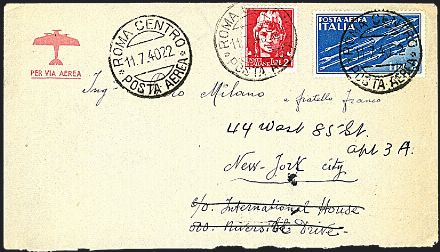 ROMA CENTRO
11.7.4022
* POSTA AEREA *
ROMA CENTRO
POSTA AEREA
POSTE ITALIANE LIRE 2
POSTA AEREA
ITALIA
POSTA AEREA
PER VIA AEREA
Ing Milano e fratello Franco
44 West 85 St.
apt 3A.
New-York city
c/o International House
500 Riverside Drive